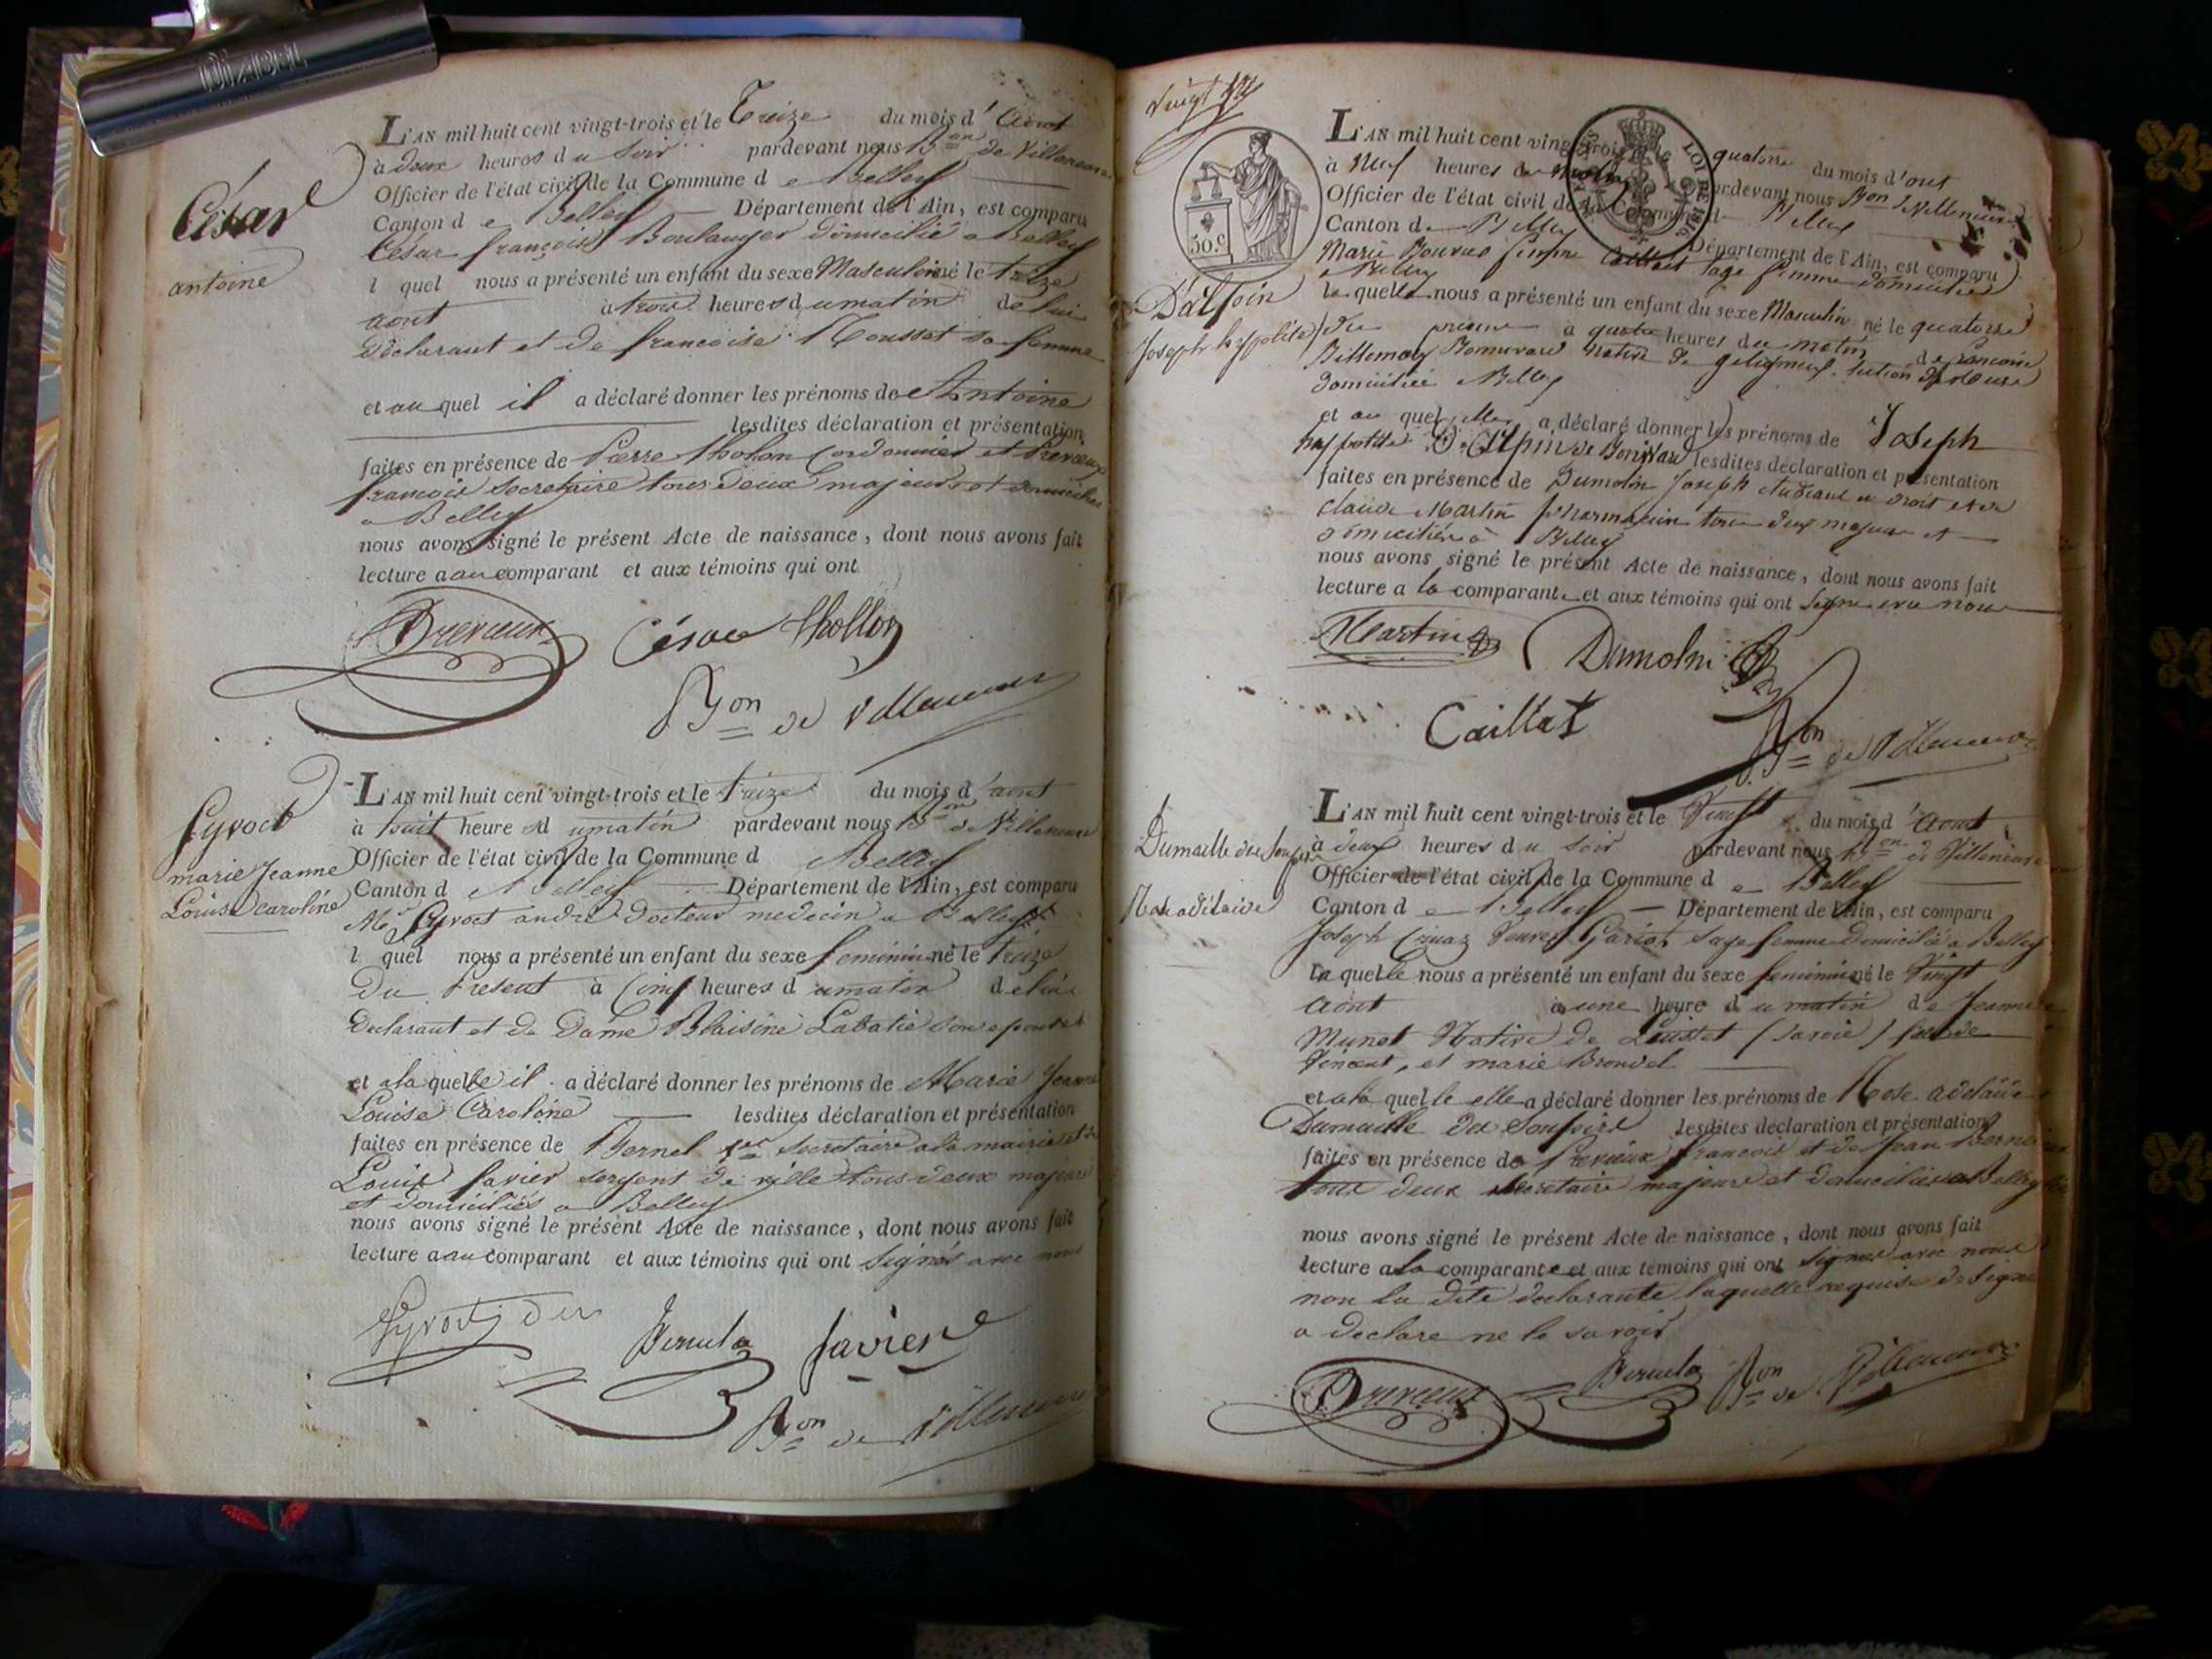 César
antoine
L'AN mil huit cent vingt-trois et le Treize du mois d'Aout
à deux heures du Soir pardevant nous Bon de Villeneuve
Officier de l'état civil de la Commune de Belley
Canton de Belley Département de l'Ain, est comparu
César françois Boulanger domicilié a Belley
l quel nous a présenté un enfant du sexe Masculin né le treize
aout a trois heures du matin de lui
déclarant et de francoise Mousset sa femme
et au quel il a déclaré donner les prénoms de Antoine
lesdites déclaration et présentation
faites en présence de Pierre tholon Cordonnier et Previeux
françois Secretaire tous deux majeurs et domicilies
a Belley
nous avons signé le présent Acte de naissance, dont nous avons fait
lecture a au comparant et aux témoins qui ont
Previeux César thollon
Bon de Villeneuve
Gyroct
marie Jeanne
Louise caroline
L'AN mil huit cent vingt-trois et le treize du mois d'aout
à huit heures du matin pardevant nous Bon de Villeneuve
Officier de l'état civil de la Commune d Belley
Canton d Belley Département de l'Ain, est comparu
Mr Gyroct andré docteur medecin a Belley
l quel nous a présenté un enfant du sexe feminin né le treize
du Present à Cinq heures du matin de lui
declarant et de Dame Blaisine Labatie son epouse
et a la quelle il a déclaré donner les prénoms de Marie Jeanne
Louise Caroline lesdites déclaration et présentation
faites en présence de secretaire a la mairie et de
Louis favier sergent de ville tous deux majeurs
et domiciliés a Belley
nous avons signé le présent Acte de naissance, dont nous avons fait
lecture a au comparant et aux témoins qui ont Signés avec nous
Gyroct
favier
Bon de Villeneuve
50.c
LOI DE 1816
Dalpin
Joseph hyppolite
L'AN mil huit cent vingt-trois et le quatorze du mois d'out
à Neuf heures du matin pardevant nous Bon de Villeneuve
Officier de l'état civil de la Commune d Belley
Canton de Belley Département de l'Ain, est comparu
Marie femme Caillat sage femme domiciliée
a Belley
la quelle nous a présenté un enfant du sexe Masculin né le quatorze
du à quatre heures du matin de
native de
domiciliée a Belley
et au quel elle a déclaré donner les prénoms de Joseph
hyppolite D'Alpin de lesdites déclaration et présentation
faites en présence de Dumolin Joseph étudiant en droit et de
claude Martin pharmacien tous deux majeurs et
domiciliés à Belley
nous avons signé le présent Acte de naissance, dont nous avons fait
lecture a la comparante et aux témoins qui ont Signé avec nous
Martin Dumolin
Caillat
Bon de Villeneuve
Dumaille du Soupire
Rose adélaide
L'AN mil huit cent vingt-trois et le Vingt du mois d'Aout
à deux heures du Soir pardevant nous Bon de Villeneuve
Officier de l'état civil de la Commune de Belley
Canton de Belley Département de l'Ain, est comparu
Joseph Veuve sage femme domicilié a Belley
la quelle nous a présenté un enfant du sexe feminin né le Vingt
Aout à une heure du matin de Jeanne
Munet Native de (Savoie) fille de
Vincent, et marie Brondel
et a la quelle elle a déclaré donner les prénoms de Rose adelaide
Dumaille du Soupire lesdites déclaration et présentation
faites en présence de Previeux françois et de Jean
tous deux secretaire majeurs et domiciliés a Belley
nous avons signé le présent Acte de naissance, dont nous avons fait
lecture a la comparante et aux témoins qui ont Signés avec nous
non la dite declarante laquelle requise de signer
a declare ne le savoir
Previeux Bon de Villeneuve